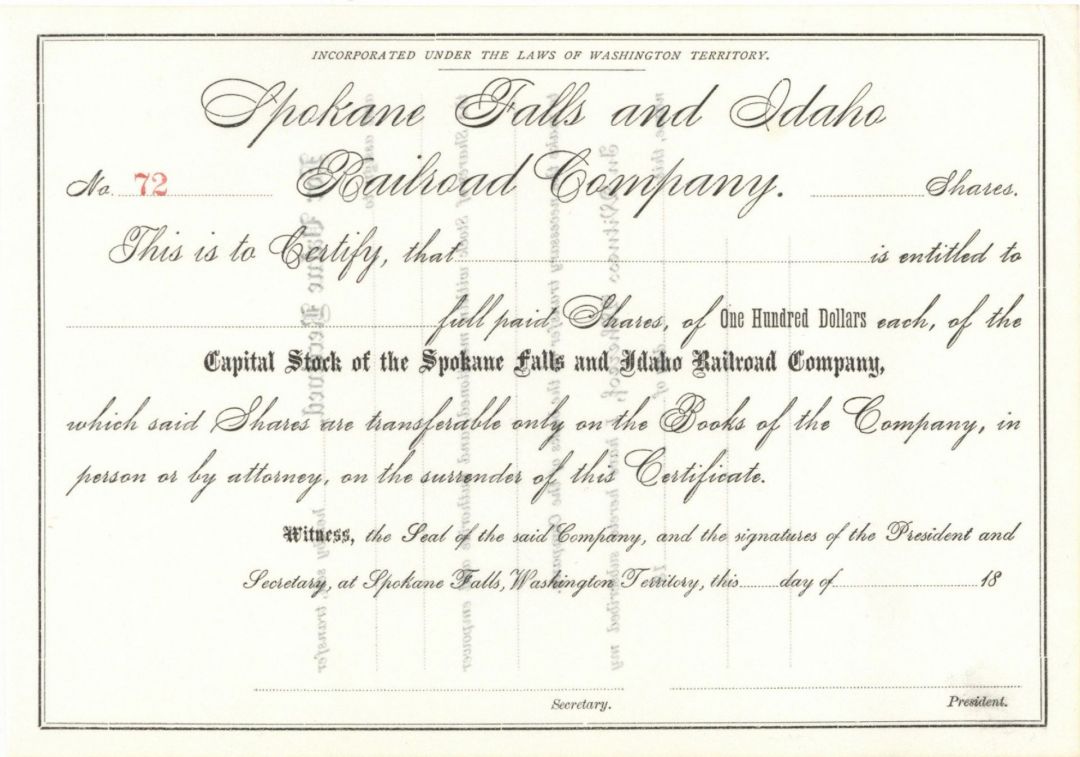 INCORPORATED UNDER THE LAWS OF WASHINGTON TERRITORY.
Spokane Falls and Idaho
No. 72 Railroad Company. Shares.
This is to Certify, that is entitled to
full paid Shares, of One Hundred Dollars each, of the
Capital Stock of the Spokane Falls and Idaho Railroad Company,
which said Shares are transferable only on the Books of the Company, in
person or by attorney, on the surrender of this Certificate.
Witness, the Seal of the said Company, and the signatures of the President and
Secretary, at Spokane Falls, Washington Territory, this day of 18
Secretary. President.